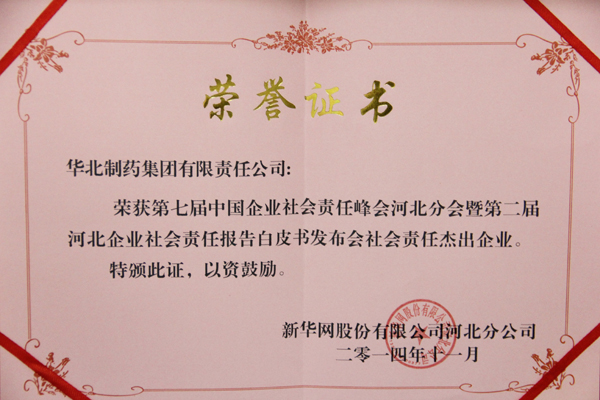 荣誉证书
华北制药集团有限责任公司:
荣获第七届中国企业社会责任峰会河北分会暨第二届
河北企业社会责任报告白皮书发布会社会责任杰出企业。
特颁此证，以资鼓励。
新华网股份有限公司河北分公司
二零一四年十一月